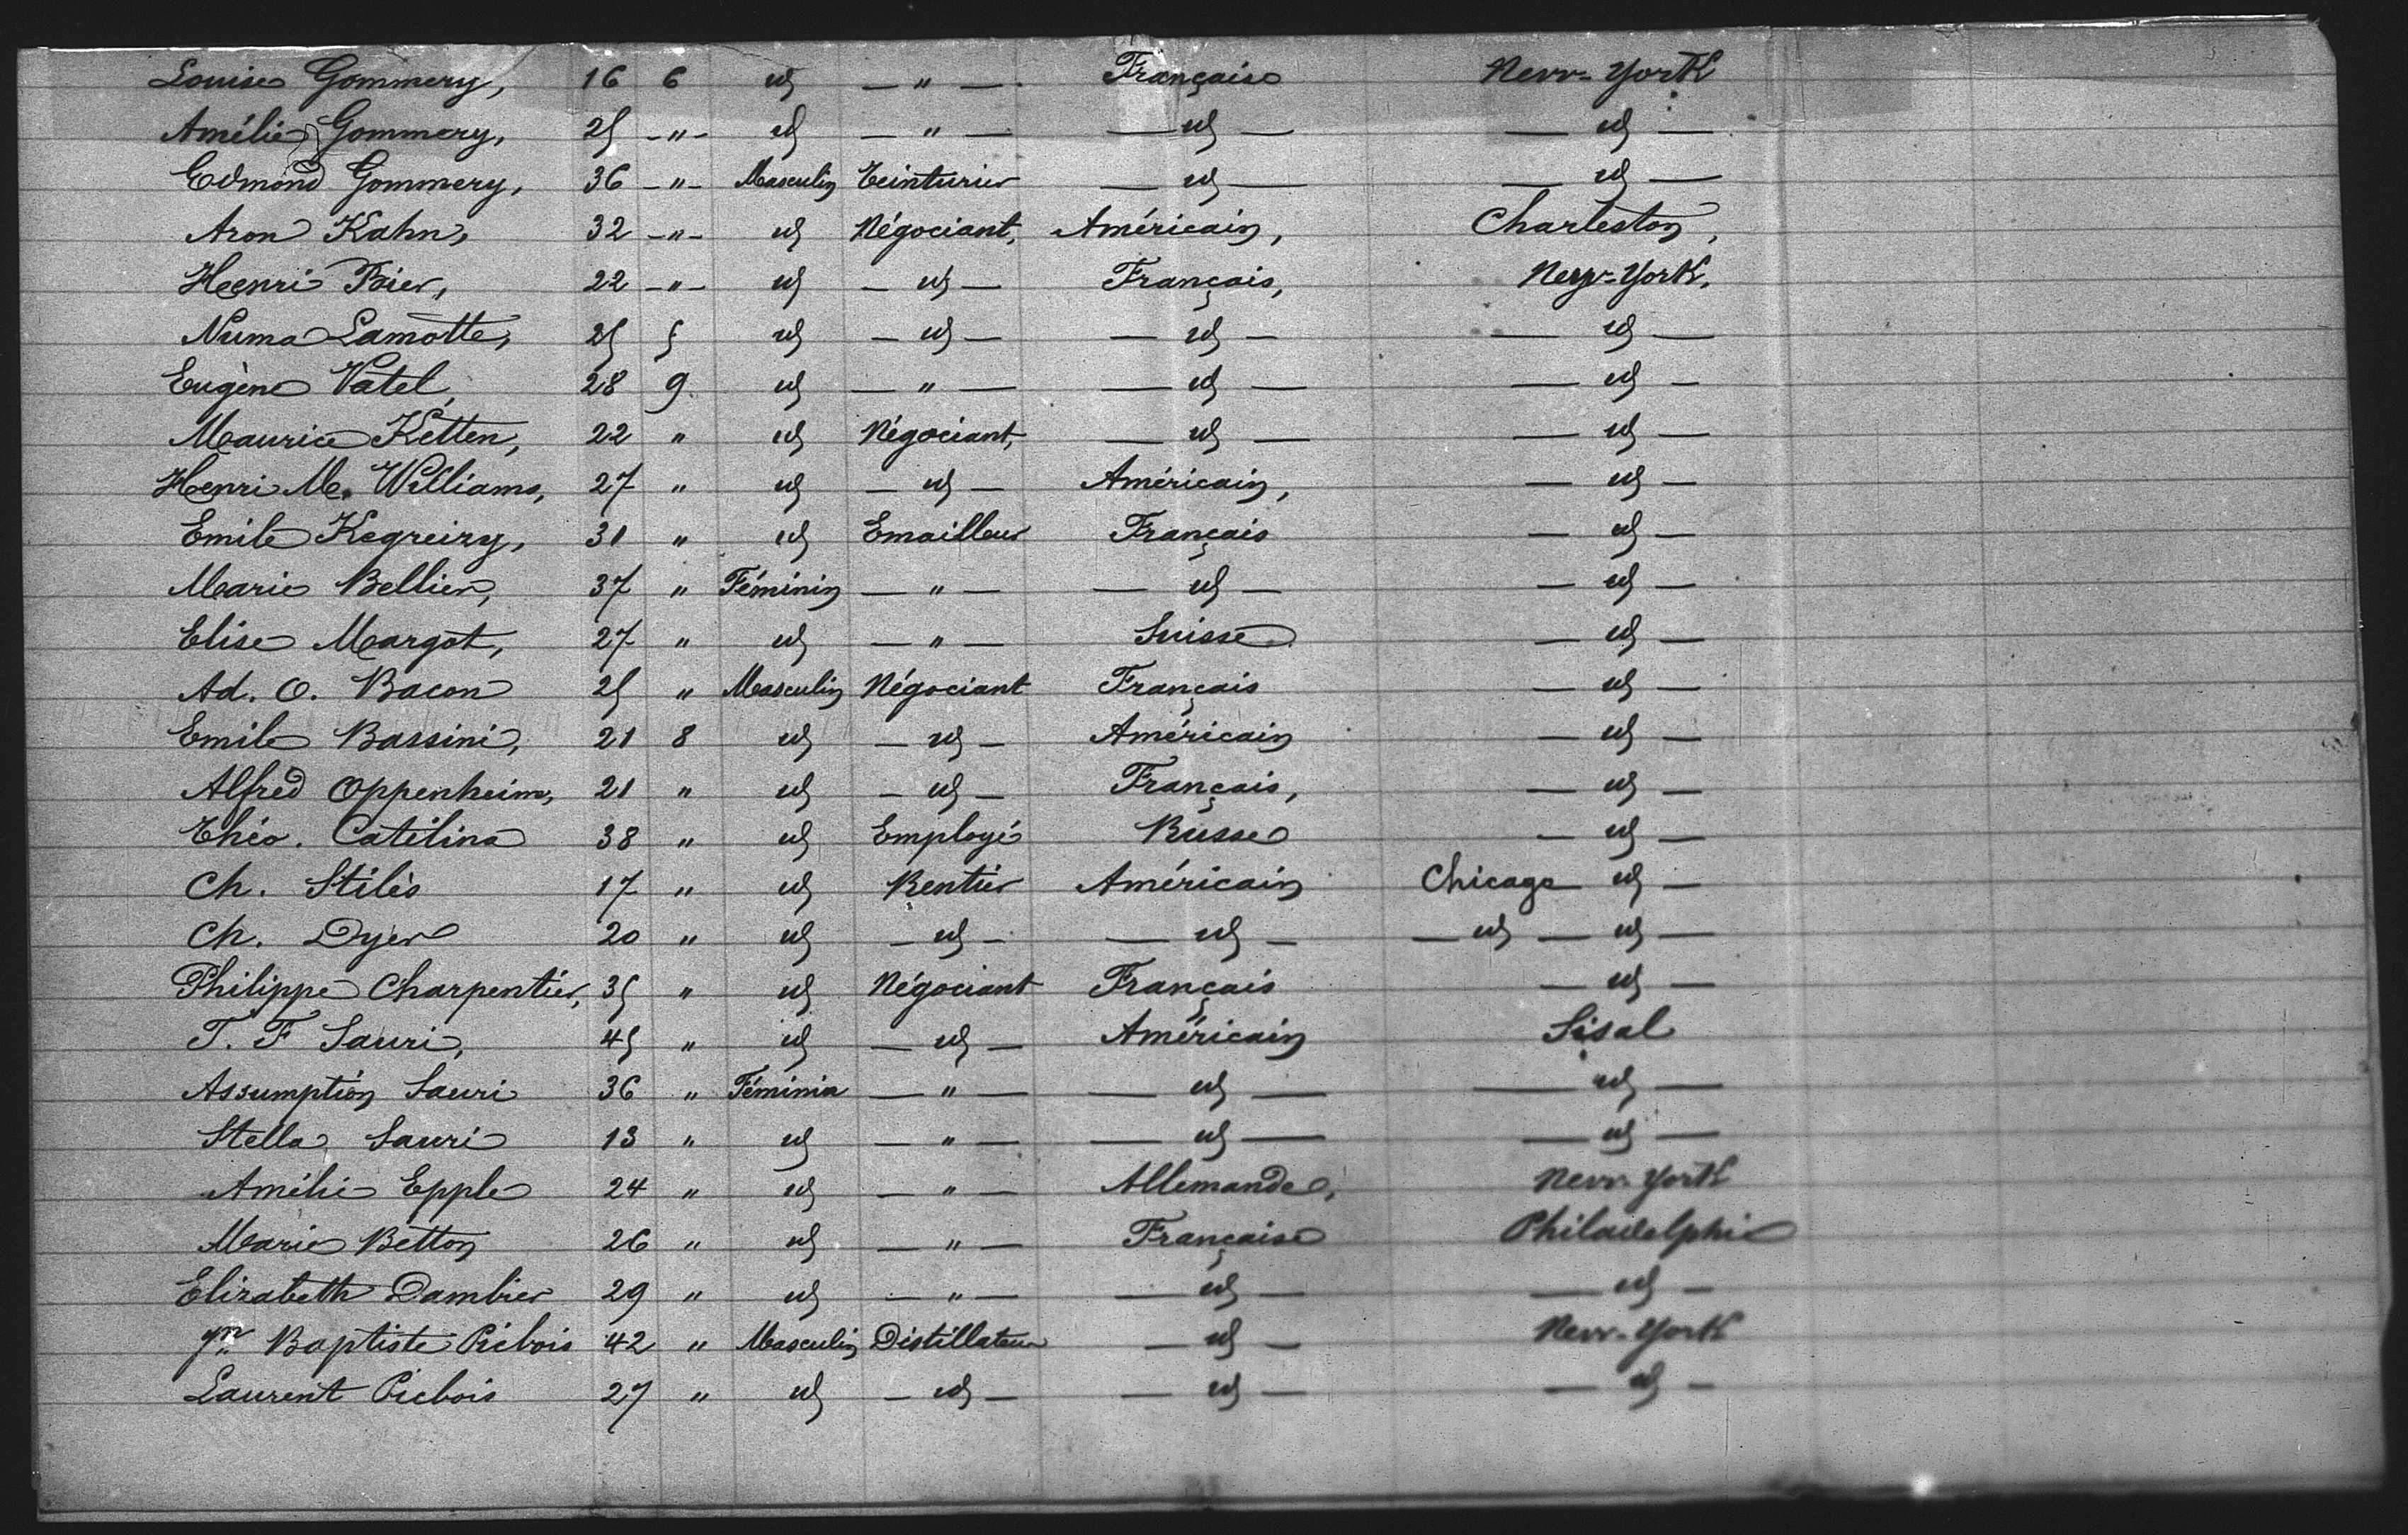 Louise Gommery, 16 6 id — " — Française New-York
Amélie Gommery, 25 — " — id — " — — id — — id —
Edmond Gommery, 36 — " — Masculin Teinturier — id — — id —
Aron Kahn, 32 — " — id Négociant, Américain, Charleston,
Henri Bier, 22 — " — id — id — Français, New-York.
Numa Lamotte, 25 5 id — id — — id — — id —
Eugène Vatel, 28 9 id — " — — id — — id —
Maurice Ketten, 22 " id Négociant, — id — — id —
Henri M. Williams, 27 " id — id — Américain, — id —
Emile Kegreizy, 31 " id Emailleur Français — id —
Marie Bellier, 37 " Féminin — " — — id — — id —
Elise Margot, 27 " id — " — Suisse — id —
Ad. O. Bacon 25 " Masculin Négociant Français — id —
Emile Bassini, 21 8 id — id — Américain — id —
Alfred Oppenheim, 21 " id — id — Français, — id —
Théo. Catilina 38 " id Employé Russe — id —
Ch. Stilès 17 " id Rentier Américain Chicago id —
Ch. Dyer 20 " id — id — — id — — id — id —
Philippe Charpentier, 35 " id Négociant Français — id —
T. F Sauri, 45 " id — id — Américain Sisal
Assumption Sauri 36 " Féminin — " — — id — — id —
Stella Sauri 13 " id — " — — id — — id —
Amélie Epple 24 " id — " — Allemande, New-York
Marie Betton 26 " id — " — Française Philadelphie
Elizabeth Dambier 29 " id — " — — id — — id —
Jn Baptiste Picbois 42 " Masculin Distillateur — id — New-York
Laurent Picbois 27 " id — id — — id — — id —